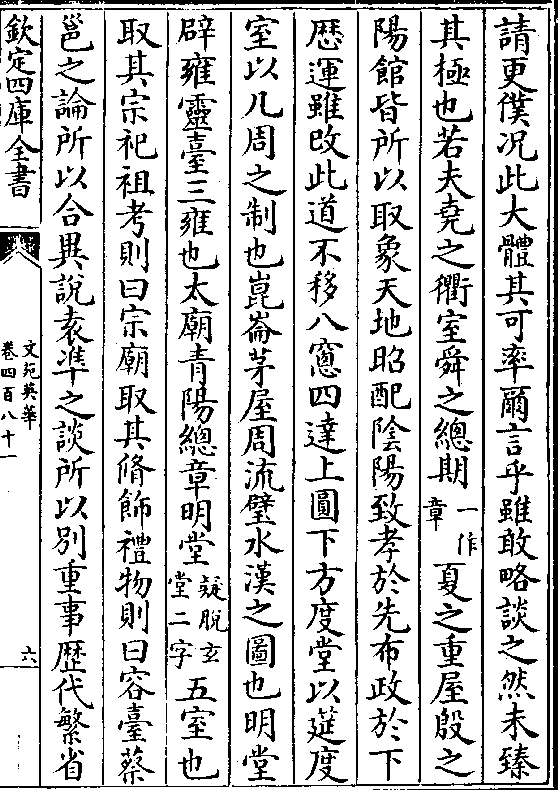 請更僕况此大體其可率爾言乎雖敢略談之然未臻
其極也若夫堯之衢室舜之總期一作章夏之重屋殷之
陽館皆所以取象天地昭配陰陽致孝於先布政於下
歴運雖改此道不移八窻四達上圓下方度堂以莚度
室以几周之制也崑崙茅屋周流璧水漢之圖也明堂
辟雍靈臺三雍也太廟青陽總章明堂疑脱玄堂二字五室也
取其宗祀祖考則曰宗廟取其脩飾禮物則曰容臺蔡
邕之論所以合異説袁準之談所以別重事歴代繁省
欽定四庫全書
文苑英華
卷四百八十一
六